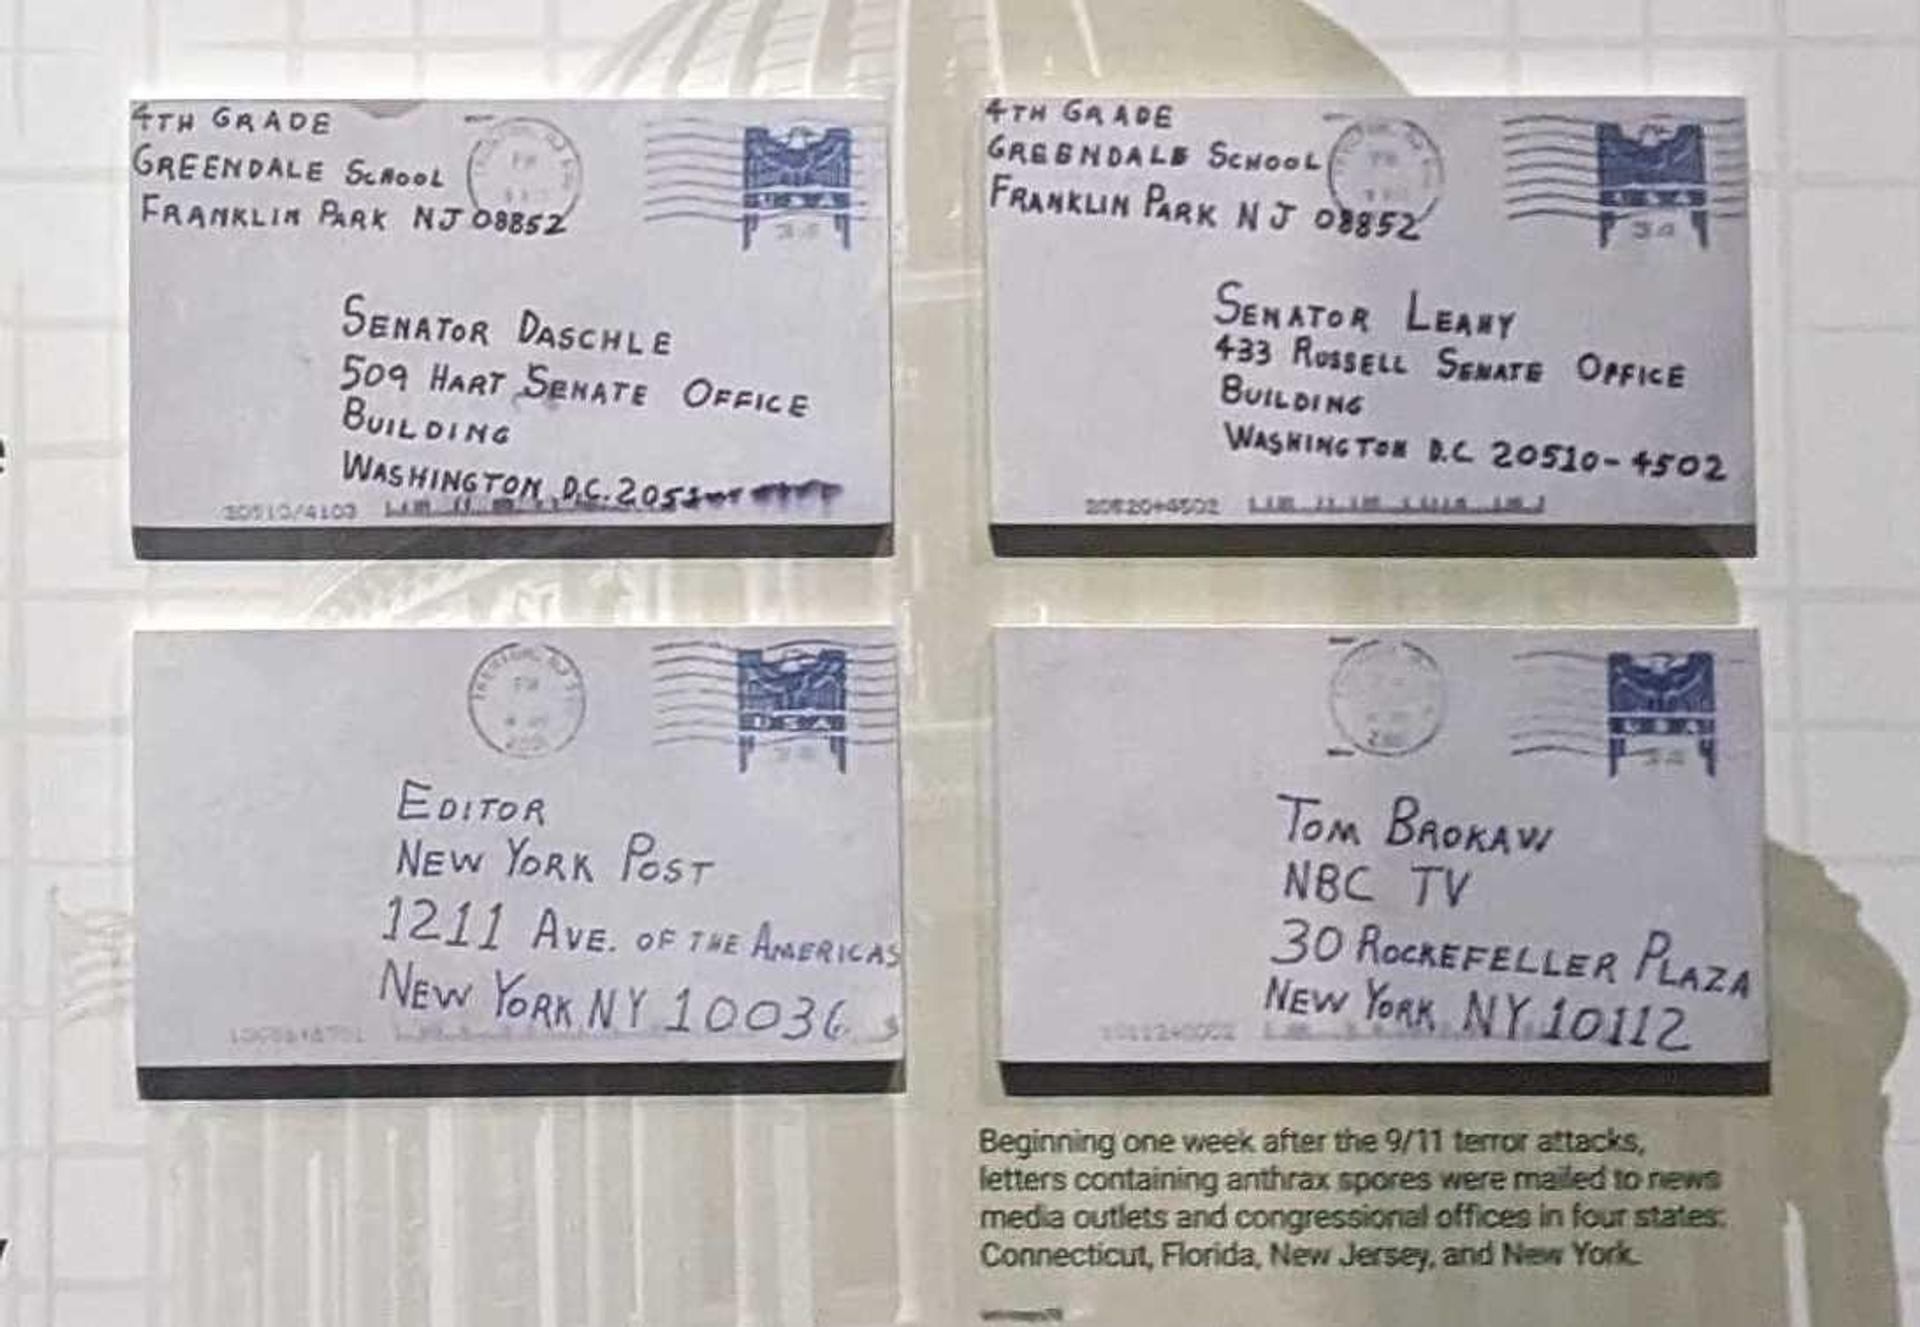 4TH GRADE
GREENDALE SCHOOL
FRANKLIN PARK NJ 08852
PM
USA
34
SENATOR DASCHLE
509 HART SENATE OFFICE
BUILDING
WASHINGTON D.C. 2051
20510/4103
4TH GRADE
GREENDALE SCHOOL
FRANKLIN PARK NJ 08852
PM
USA
34
SENATOR LEAHY
433 RUSSELL SENATE OFFICE
BUILDING
WASHINGTON D.C. 20510-4502
20520+4502
PM
2001
USA
34
EDITOR
NEW YORK POST
1211 AVE. OF THE AMERICAS
NEW YORK NY 10036
USA
34
TOM BROKAW
NBC TV
30 ROCKEFELLER PLAZA
NEW YORK NY 10112
10112+0002
Beginning one week after the 9/11 terror attacks,
letters containing anthrax spores were mailed to news
media outlets and congressional offices in four states:
Connecticut, Florida, New Jersey, and New York.